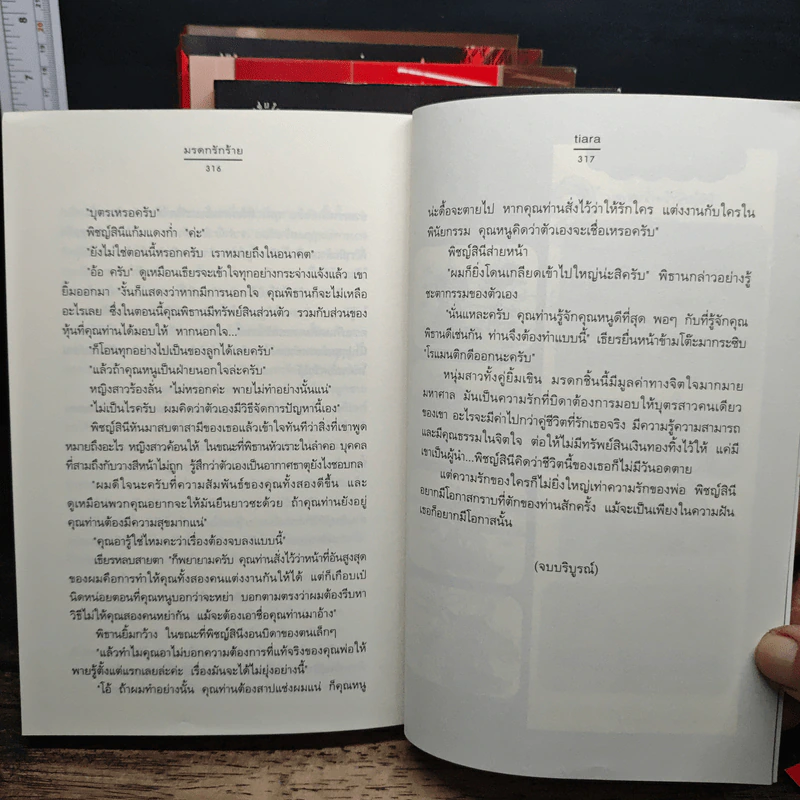 มรดกรักร้าย
316
"บุตรเหรอครับ"
พิชญ์สินีแก้มแดงก่ำ "ค่ะ"
"ยังไม่ใช่ตอนนี้หรอกครับ เราหมายถึงในอนาคต"
"อ้อ ครับ" ดูเหมือนเธียรจะเข้าใจทุกอย่างกระจ่างแจ้งแล้ว เขา
ยิ้มออกมา "งั้นก็แสดงว่าหากมีการนอกใจ คุณพิธานก็จะไม่เหลือ
อะไรเลย ซึ่งในตอนนี้คุณพิธานมีทรัพย์สินส่วนตัว รวมกับส่วนของ
หุ้นที่คุณท่านได้มอบให้ หากนอกใจ..."
"ก็โอนทุกอย่างไปเป็นของลูกได้เลยครับ"
"แล้วถ้าคุณหนูเป็นฝ่ายนอกใจล่ะครับ"
หญิงสาวร้องลั่น "ไม่หรอกค่ะ พายไม่ทำอย่างนั้นแน่"
"ไม่เป็นไรครับ ผมคิดว่าตัวเองมีวิธีจัดการปัญหานี้เอง"
พิชญ์สินีหันมาสบตาสามีของเธอแล้วเข้าใจทันทีว่าสิ่งที่เขาพูด
หมายถึงอะไร หญิงสาวค้อนให้ ในขณะที่พิธานหัวเราะในลำคอ บุคคล
ที่สามถึงกับวางสีหน้าไม่ถูก รู้สึกว่าตัวเองเป็นอากาศธาตุยังไงชอบกล
"ผมดีใจนะครับที่ความสัมพันธ์ของคุณทั้งสองดีขึ้น และ
ดูเหมือนพวกคุณอยากจะให้มันยืนยาวซะด้วย ถ้าคุณท่านยังอยู่
คุณท่านต้องมีความสุขมากแน่"
"คุณอารู้ใช่ไหมคะว่าเรื่องต้องจบลงแบบนี้"
เธียรหลบสายตา "ก็พยายามครับ คุณท่านสั่งไว้ว่าหน้าที่อันสูงสุด
ของผมคือการทำให้คุณทั้งสองคนแต่งงานกันให้ได้ แต่ก็เกือบเป๋
นิดหน่อยตอนที่คุณหนูบอกว่าจะหย่า บอกตามตรงว่าผมต้องรีบหา
วิธีไม่ให้คุณสองคนหย่ากัน แม้จะต้องเอาชื่อคุณท่านมาอ้าง"
พิธานยิ้มกว้าง ในขณะที่พิชญ์สินีงอนบิดาของตนเล็กๆ
"แล้วทำไมคุณอาไม่บอกความต้องการที่แท้จริงของคุณพ่อให้
พายรู้ตั้งแต่แรกเลยล่ะคะ เรื่องมันจะได้ไม่ยุ่งอย่างนี้"
"โอ้ ถ้าผมทำอย่างนั้น คุณท่านต้องสาปแช่งผมแน่ ก็คุณหนู
tiara
317
น่ะดื้อจะตายไป หากคุณท่านสั่งไว้ว่าให้รักใคร แต่งงานกับใครใน
พินัยกรรม คุณหนูคิดว่าตัวเองจะเชื่อเหรอครับ"
พิชญ์สินีส่ายหน้า
"ผมก็ยิ่งโดนเกลียดเข้าไปใหญ่น่ะสิครับ" พิธานกล่าวอย่างรู้
ชะตากรรมของตัวเอง
"นั่นแหละครับ คุณท่านรู้จักคุณหนูดีที่สุด พอๆ กับที่รู้จักคุณ
พิธานดีเช่นกัน ท่านจึงต้องทำแบบนี้" เธียรยื่นหน้าข้ามโต๊ะมากระซิบ
"โรแมนติกดีออกนะครับ"
หนุ่มสาวทั้งคู่ยิ้มเขิน มรดกชิ้นนี้มีมูลค่าทางจิตใจมากมาย
มหาศาล มันเป็นความรักที่บิดาต้องการมอบให้บุตรสาวคนเดียว
ของเขา อะไรจะมีค่าไปกว่าคู่ชีวิตที่รักเธอจริง มีความรู้ความสามารถ
และมีคุณธรรมในจิตใจ ต่อให้ไม่มีทรัพย์สินเงินทองทิ้งไว้ให้ แค่มี
เขาเป็นผู้นำ...พิชญ์สินีคิดว่าชีวิตนี้ของเธอก็ไม่มีวันอดตาย
แต่ความรักของใครก็ไม่ยิ่งใหญ่เท่าความรักของพ่อ พิชญ์สินี
อยากมีโอกาสกราบที่ตักของท่านสักครั้ง แม้จะเป็นเพียงในความฝัน
เธอก็อยากมีโอกาสนั้น
(จบบริบูรณ์)
8
7